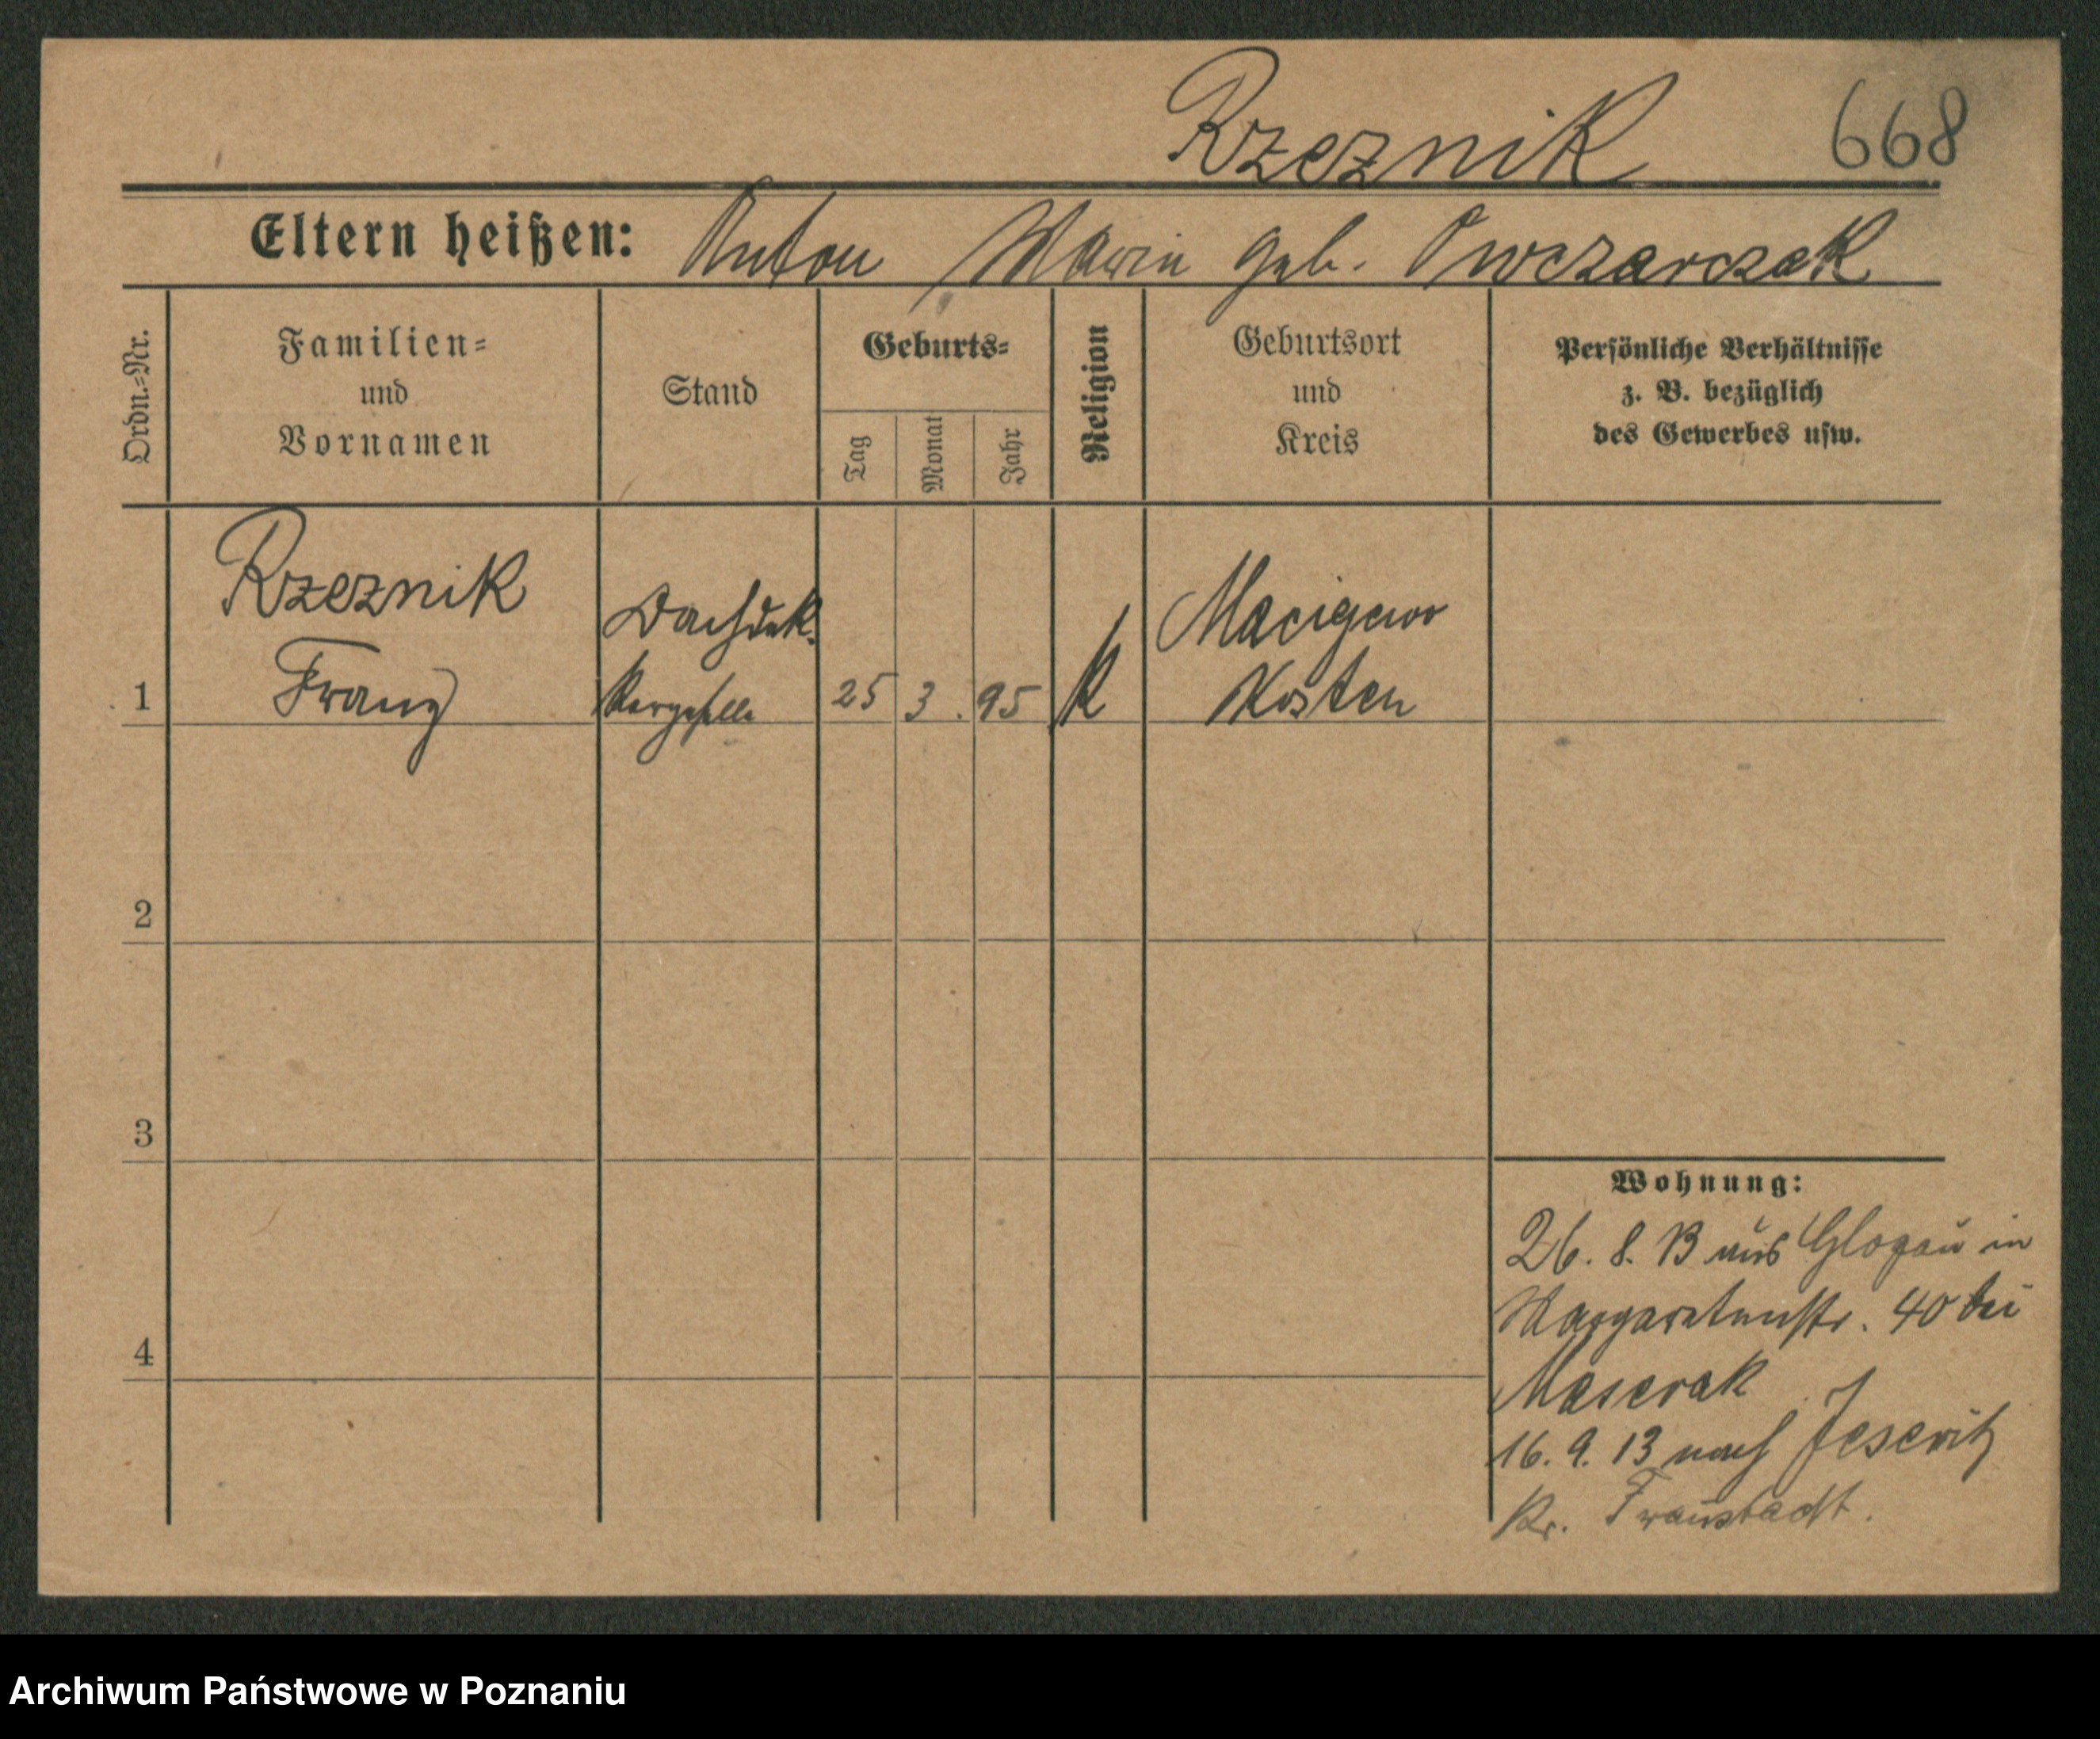 Rzeznik 668
Eltern heißen: Anton Marie geb. Owczarczak
Ordn.-Nr.
Familien-
und
Vornamen
Stand
Geburts-
Tag
Monat
Jahr
Religion
Geburtsort
und
Kreis
Persönliche Verhältnisse
z. B. bezüglich
des Gewerbes usw.
Rzeznik
Franz
Dachdek
kergeselle
1 25 3. 95 k
Kosten
2
3
4
Wohnung:
26. 8. 13 aus Glogau in
Margaretenstr. 40 bei
16. 9. 13 nach Jeseritz
Kr. Fraustadt.
Archiwum Państwowe w Poznaniu